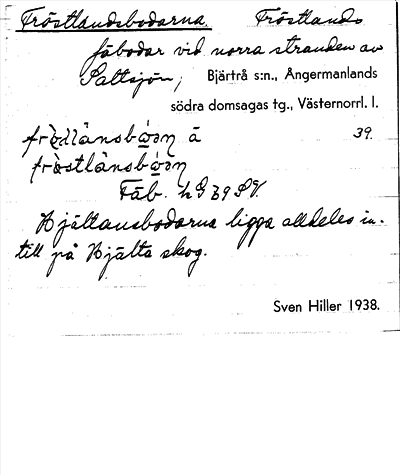 Fröstlandsbodarna. Fröstlands
fäbodar vid norra stranden av
Saltsjön; Bjärtrå s:n., Ångermanlands
södra domsagas tg., Västernorrl. l.
å 39.
Fäb.
Hjältansbodarna ligga alldeles in-
till på Hjälta skog.
Sven Hiller 1938.